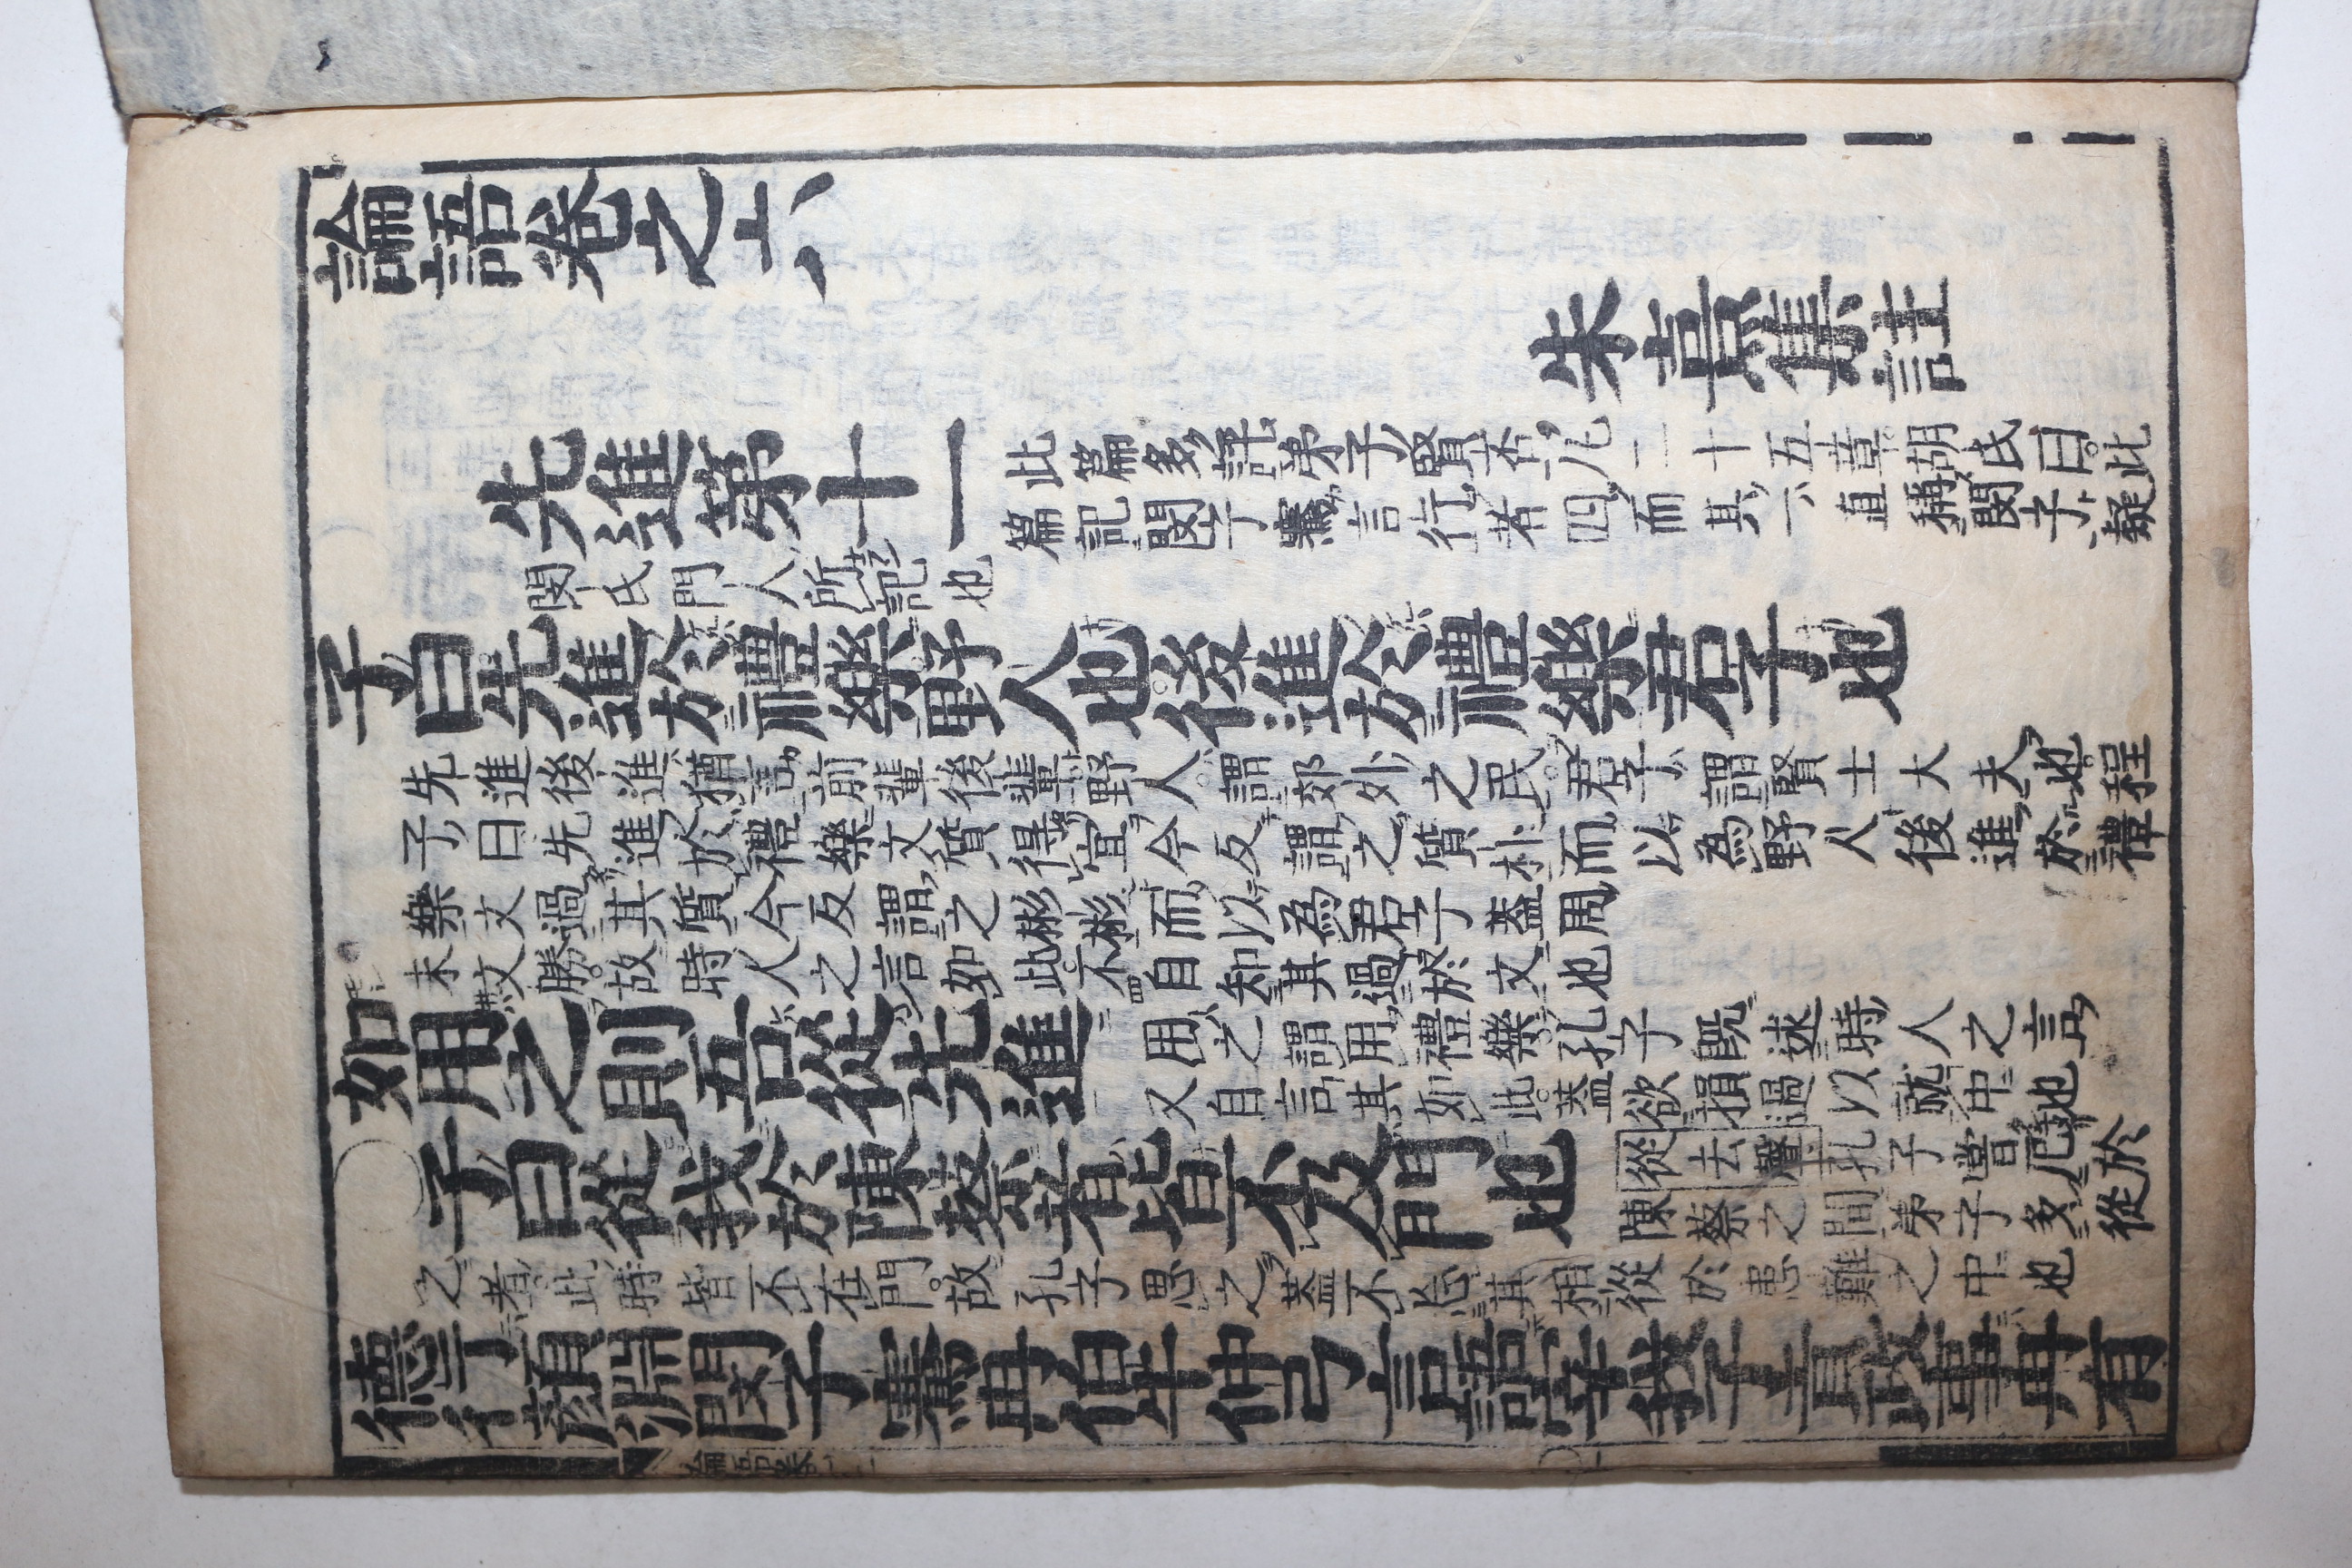 論語卷之六
朱熹集註
先進第十一
此篇多評弟子賢否凡二十五章胡氏曰此
篇記閔子騫言行者四而其一直稱閔子疑
閔氏門人所記也
子曰先進於禮樂野人也後進於禮樂君子也
先進後進猶言前輩後輩野人謂郊外之民君子謂賢士大夫也程
子曰先進於禮樂文質得宜今反謂之質朴而以為野人後進於禮
樂文過其質今反謂之彬彬而以為君子蓋周
末文勝故時人之言如此不自知其過於文也
如用之則吾從先進
用之謂用禮樂孔子既述時人之言
又自言其如此蓋欲損過以就中也
○子曰從我於陳蔡者皆不及門也
從去聲孔子嘗厄於
陳蔡之間弟子多從
之者此時皆不在門故孔子思之蓋不忘其相從於患難之中也
德行顏淵閔子騫冉伯牛仲弓言語宰我子貢政事冉有